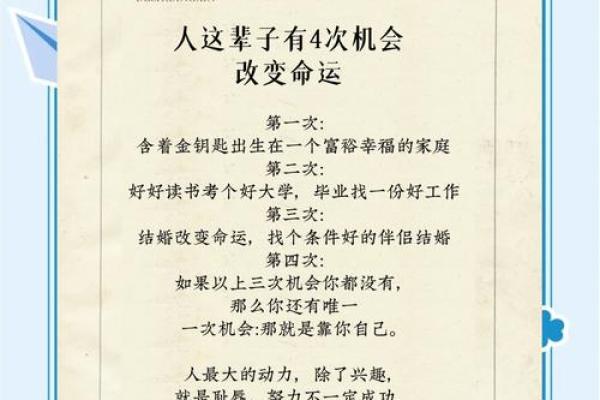 人这辈子有4次机会
改变命运
第一次:
含着金钥匙出生在一个富裕幸福的家庭
第二次:
好好读书考个好大学，毕业找一份好工作
第三次:
结婚改变命运，找个条件好的伴侣结婚
第四次:
如果以上三次机会你都没有，
那么你还有唯一
一次机会:那就是靠你自己。
人最大的动力，除了兴趣，
就是耻辱。努力不一定成功